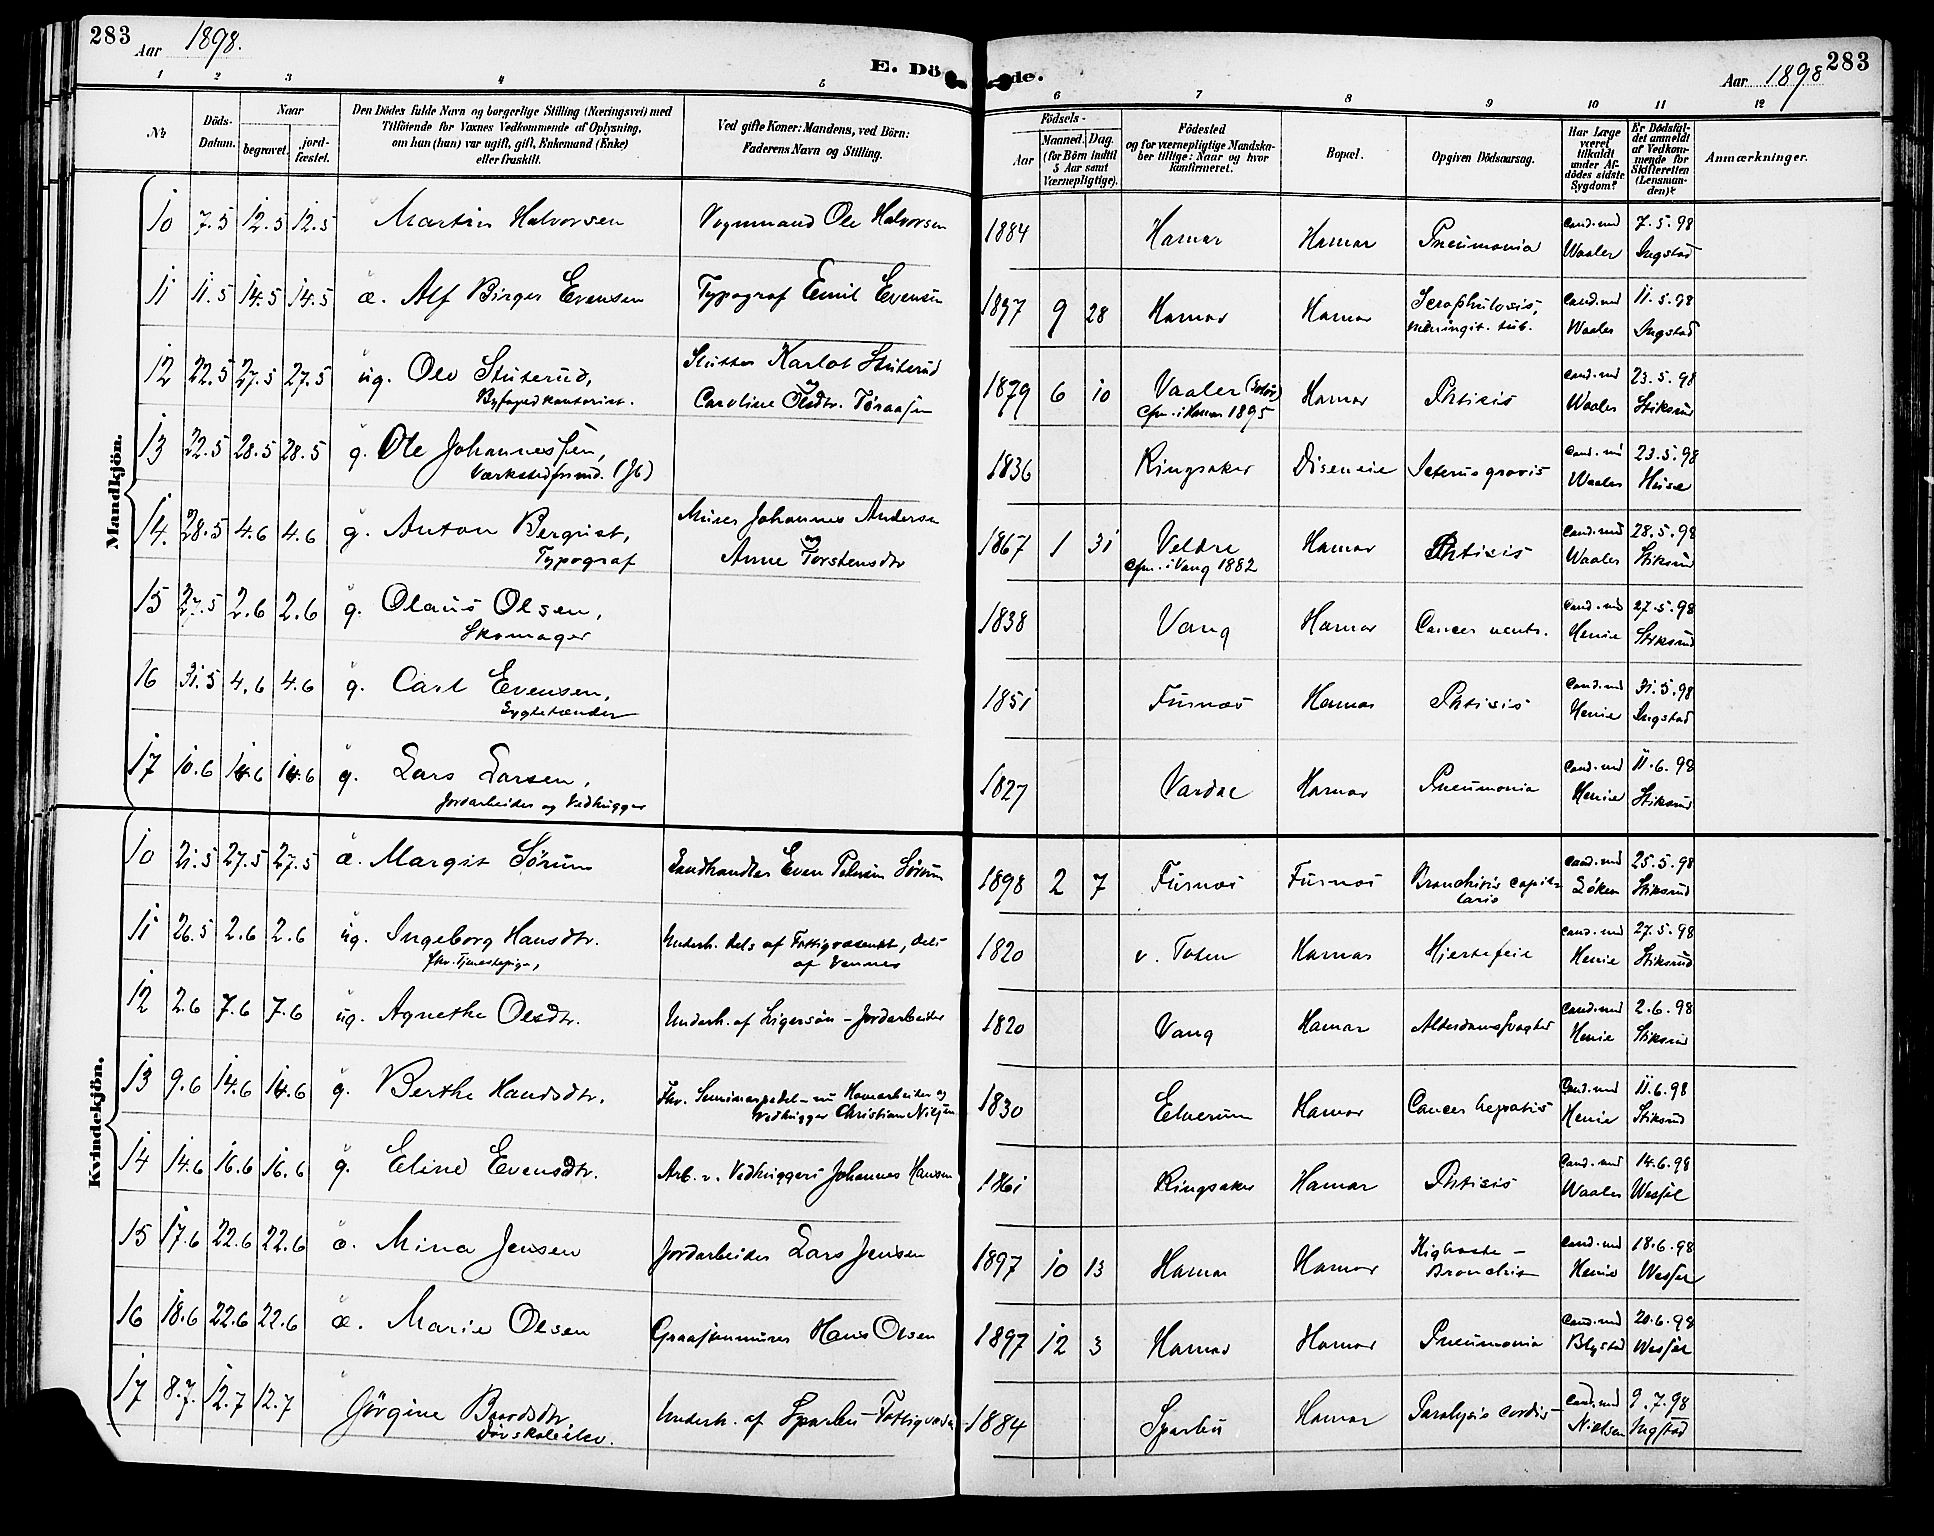 283
Aar 1898.
E. Dö
1 2 3 4 5
No
Döds-Datum.
Naar
begravet.
jord-fæstet.
Den Dödes fulde Navn og borgerlige Stilling (Næringsvei) med
Tilföiende for Voxnes Vedkommende af Oplysning,
om han (hun) var ugift, gift, Enkemand (Enke)
eller fraskilt.
Ved gifte Koner: Mandens, ved Börn:
Faderens Navn og Stilling.
Mandkjön.
10 7.5 12.5 12.5 Martin Halvorsen Vognmand Ole Halvorsen
11 11.5 14.5 14.5 æ. Alf Birger Evensen Typograf Emil Evensen
12 22.5 27.5 27.5 ug. Ole Stuterud, Karlot Stuterud
og
Caroline Olsdtr.
13 22.5 28.5 28.5 g. Ole Johannessen,
14. 28.5 4.6 4.6 g. Anton Berqvist, Murer Johannes Andersen
og
Typograf Anne Torstensdtr
15 27.5 2.6 2.6 g. Olaus Olsen,
Skomager
16 31.5 4.6 4.6 g. Carl Evensen,
Lygtetænder
17 10.6 14.6 14.6 g. Lars Larsen,
Jordarbeider og Vedhugger
Kvindekjön.
10 21.5 27.5 27.5 æ. Margit Sörum Landhandler Even Sörum
11 26.5 2.6 2.6 ug. Ingeborg Hansdtr. Underh. dels af Fattigvæsenet, dels
fhv. Tjenestepige, af Venner
12 2.6 7.6 7.6 ug. Agnethe Olsdtr. Underh. af Jordarbeider
13 9.6 14.6 14.6 g. Berthe Hansdtr. Fhv. nu Havearbeider og
Vedhugger Christian Nilsen
14 14.6 16.6 16.6 g. Eline Evensdtr. Arb. v. Vedhuggeri Johannes Hansen
15 17.6 22.6 22.6 æ. Mina Jensen Jordarbeider Lars Jensen
16 18.6 22.6 22.6 æ. Marie Olsen Hans Olsen
17 8.7. 12.7 12.7 Jörgine Baardsdtr. Underh. af Sparbu Fattigvæsen
283
Aar 1898
de.
6 7 8 9 10 11 12
Födsels-
Aar
Maaned. Dag.
(for Börn indtil
5 Aar samt
Værnepligtige).
Födested
og for værnepligtige Mandska-
ber tillige: Naar og hvor
konfirmeret.
Bopæl.
Opgiven Dödsaarsag.
Har Læge
været
tilkaldt
under Af-
dödes sidste
Sygdom?
Er Dödsfal-
det anmeldt
af Vedkom-
mende for
Skifteretten
(Lensman-
den)?
Anmærkninger.
1884 Hamar Hamar Pneumonia cand. med 7.5.98
Waaler Ingstad
1897 9 28 Hamar Hamar Scrophulosis, cand. med 11.5.98
meningit. tub. Waaler Ingstad
1879 6 10 Vaaler (Solør) Hamar Phtisis cand. med 23.5.98
cfm. i Hamar 1895 Waaler Stiksrud
1836 Ringsaker Disen eie Icterus gravis cand. med 23.5.98
Waaler
1867 1 31 Veldre Hamar Phtisis cand. med 28.5.98
cfm. i Vang 1882 Waaler Stiksrud
1838 Vang Hamar Cancer ventr. cand. med 27.5.98
Henie Stiksrud
1851 Furnæs Hamar Phtisis cand. med 31.5.98
Henie Ingstad
1827 Vardal Hamar Pneumonia cand. med 11.6.98
Henie Stiksrud
1898 2 7 Furnæs Furnæs Bronchitis capil-
laris cand. med 25.5.98
Löken Stiksrud
1820 v. Toten Hamar Hjertefeil cand. med 27.5.98
Henie Stiksrud
1820 Vang Hamar Alderdomssvaghed cand. med 2.6.98
Henie Stiksrud
1830 Elverum Hamar Cancer hepatis cand. med 11.6.98
Henie Stiksrud
1861 Ringsaker Hamar Phtisis cand. med 14.6.98
Waaler Wessel
1897 10 13 Hamar Hamar Kighoste - cand. med 18.6.98
Bronchit Henie Wessel
1897 12 3 Hamar Hamar Pneumonia cand. med 20.6.98
Blystad Wessel
1884 Sparbu Hamar Paralysis cordis cand. med 9.7.98
Nielsen Ingstad